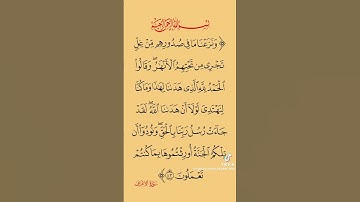 بِسْمِ اللَّهِ الرَّحْمَٰنِ الرَّحِيمِ
﴿ وَنَزَعْنَا مَا فِي صُدُورِهِم مِّنْ غِلٍّ
تَجْرِي مِن تَحْتِهِمُ الْأَنْهَارُ ۖ وَقَالُوا
الْحَمْدُ لِلَّهِ الَّذِي هَدَانَا لِهَٰذَا وَمَا كُنَّا
لِنَهْتَدِيَ لَوْلَا أَنْ هَدَانَا اللَّهُ ۖ لَقَدْ
جَاءَتْ رُسُلُ رَبِّنَا بِالْحَقِّ ۖ وَنُودُوا أَن
تِلْكُمُ الْجَنَّةُ أُورِثْتُمُوهَا بِمَا كُنتُمْ
تَعْمَلُونَ ﴿٤٣﴾ ﴾
سورة الأعراف